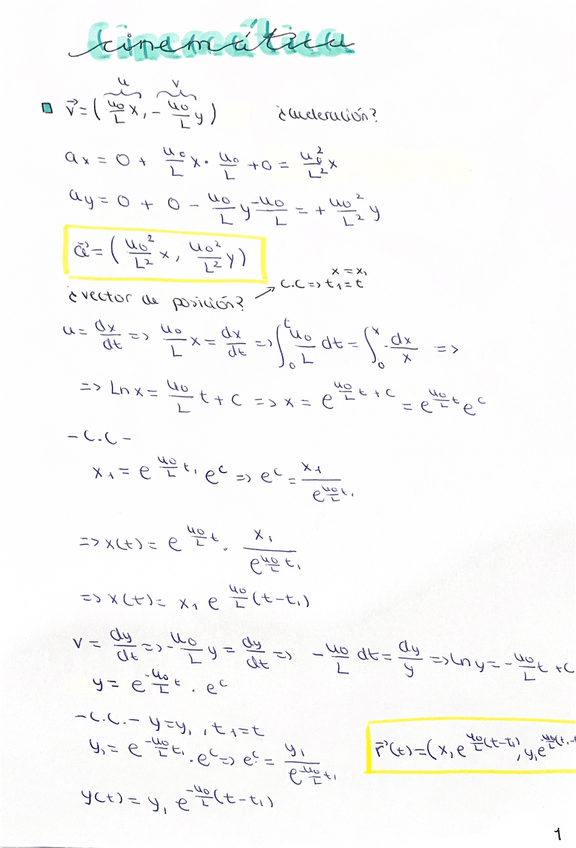 cinemática
u v
v⃗ = (u₀/L x, - u₀/L y) ¿aceleración?
ax = 0 + u₀/L x · u₀/L + 0 = u₀²/L² x
ay = 0 + 0 - u₀/L y · -u₀/L = + u₀²/L² y
a⃗ = (u₀²/L² x, u₀²/L² y)
x = x₁
¿vector de posición? → C.C => t₁ = t
u = dx/dt => u₀/L x = dx/dt => ∫₀ᵗ u₀/L dt = ∫₀ˣ dx/x =>
=> Ln x = u₀/L t + C => x = e^(u₀/L t + C) = e^(u₀/L t) e^C
- C.C -
x₁ = e^(u₀/L t₁) e^C => e^C = x₁/e^(u₀/L t₁)
=> x(t) = e^(u₀/L t) · x₁/e^(u₀/L t₁)
=> x(t) = x₁ e^(u₀/L (t-t₁))
v = dy/dt => - u₀/L y = dy/dt => - u₀/L dt = dy/y => Ln y = - u₀/L t + C
y = e^(-u₀/L t) · e^C
- C.C. - y = y₁, t₁ = t
y₁ = e^(-u₀/L t₁) · e^C => e^C = y₁/e^(-u₀/L t₁)
r⃗(t) = (x₁ e^(u₀/L (t-t₁)), y₁ e
y(t) = y₁ e^(-u₀/L (t-t₁))
1